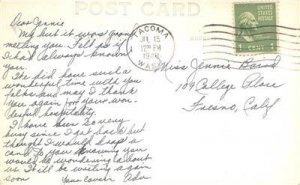 POST CARD
Dear Jennie
My but it was good
meeting you. Felt as if
I had always known
you.
She did have such a
wonderful time with you
folks. But may I thank
you again for your won-
derful hospitality.
I have been so very
busy since I got back but
thought I would drop a
card
would be wondering about
us. I'll be writing again
soon
Your cousin
TACOMA
JUL 15
12 PM
WASH.
UNITED STATES POSTAGE
1 CENT 1
Miss Jennie Baird
109 College Place
Fresno, Calif